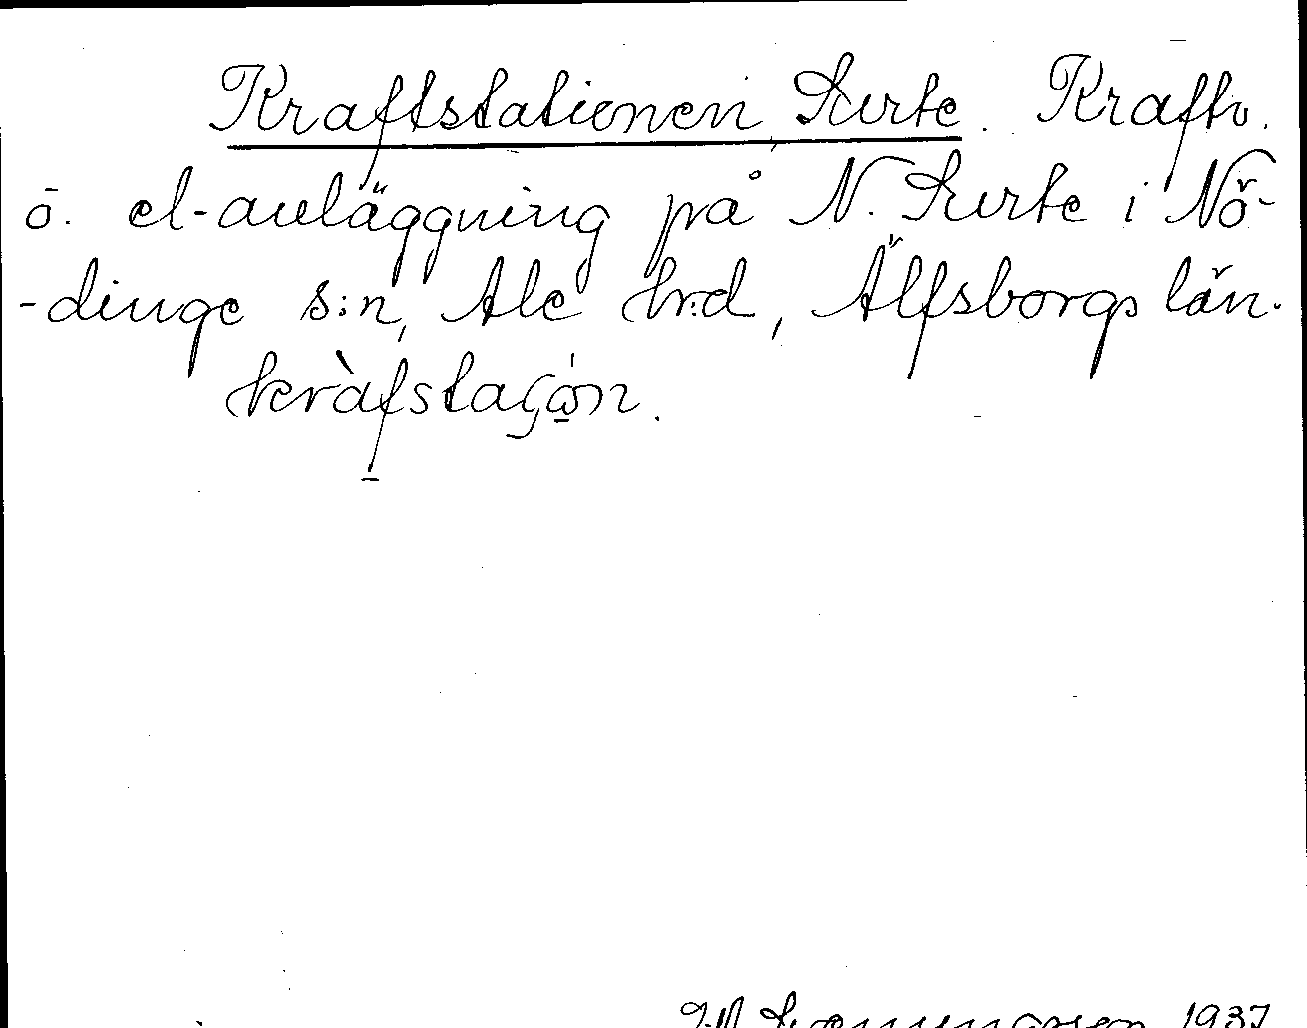 Kraftstationen, Surte. Kraftv.
o. el-anläggning på N. Surte i Nö-
-dinge s:n, Ale hrd, Älfsborgs län.
1937